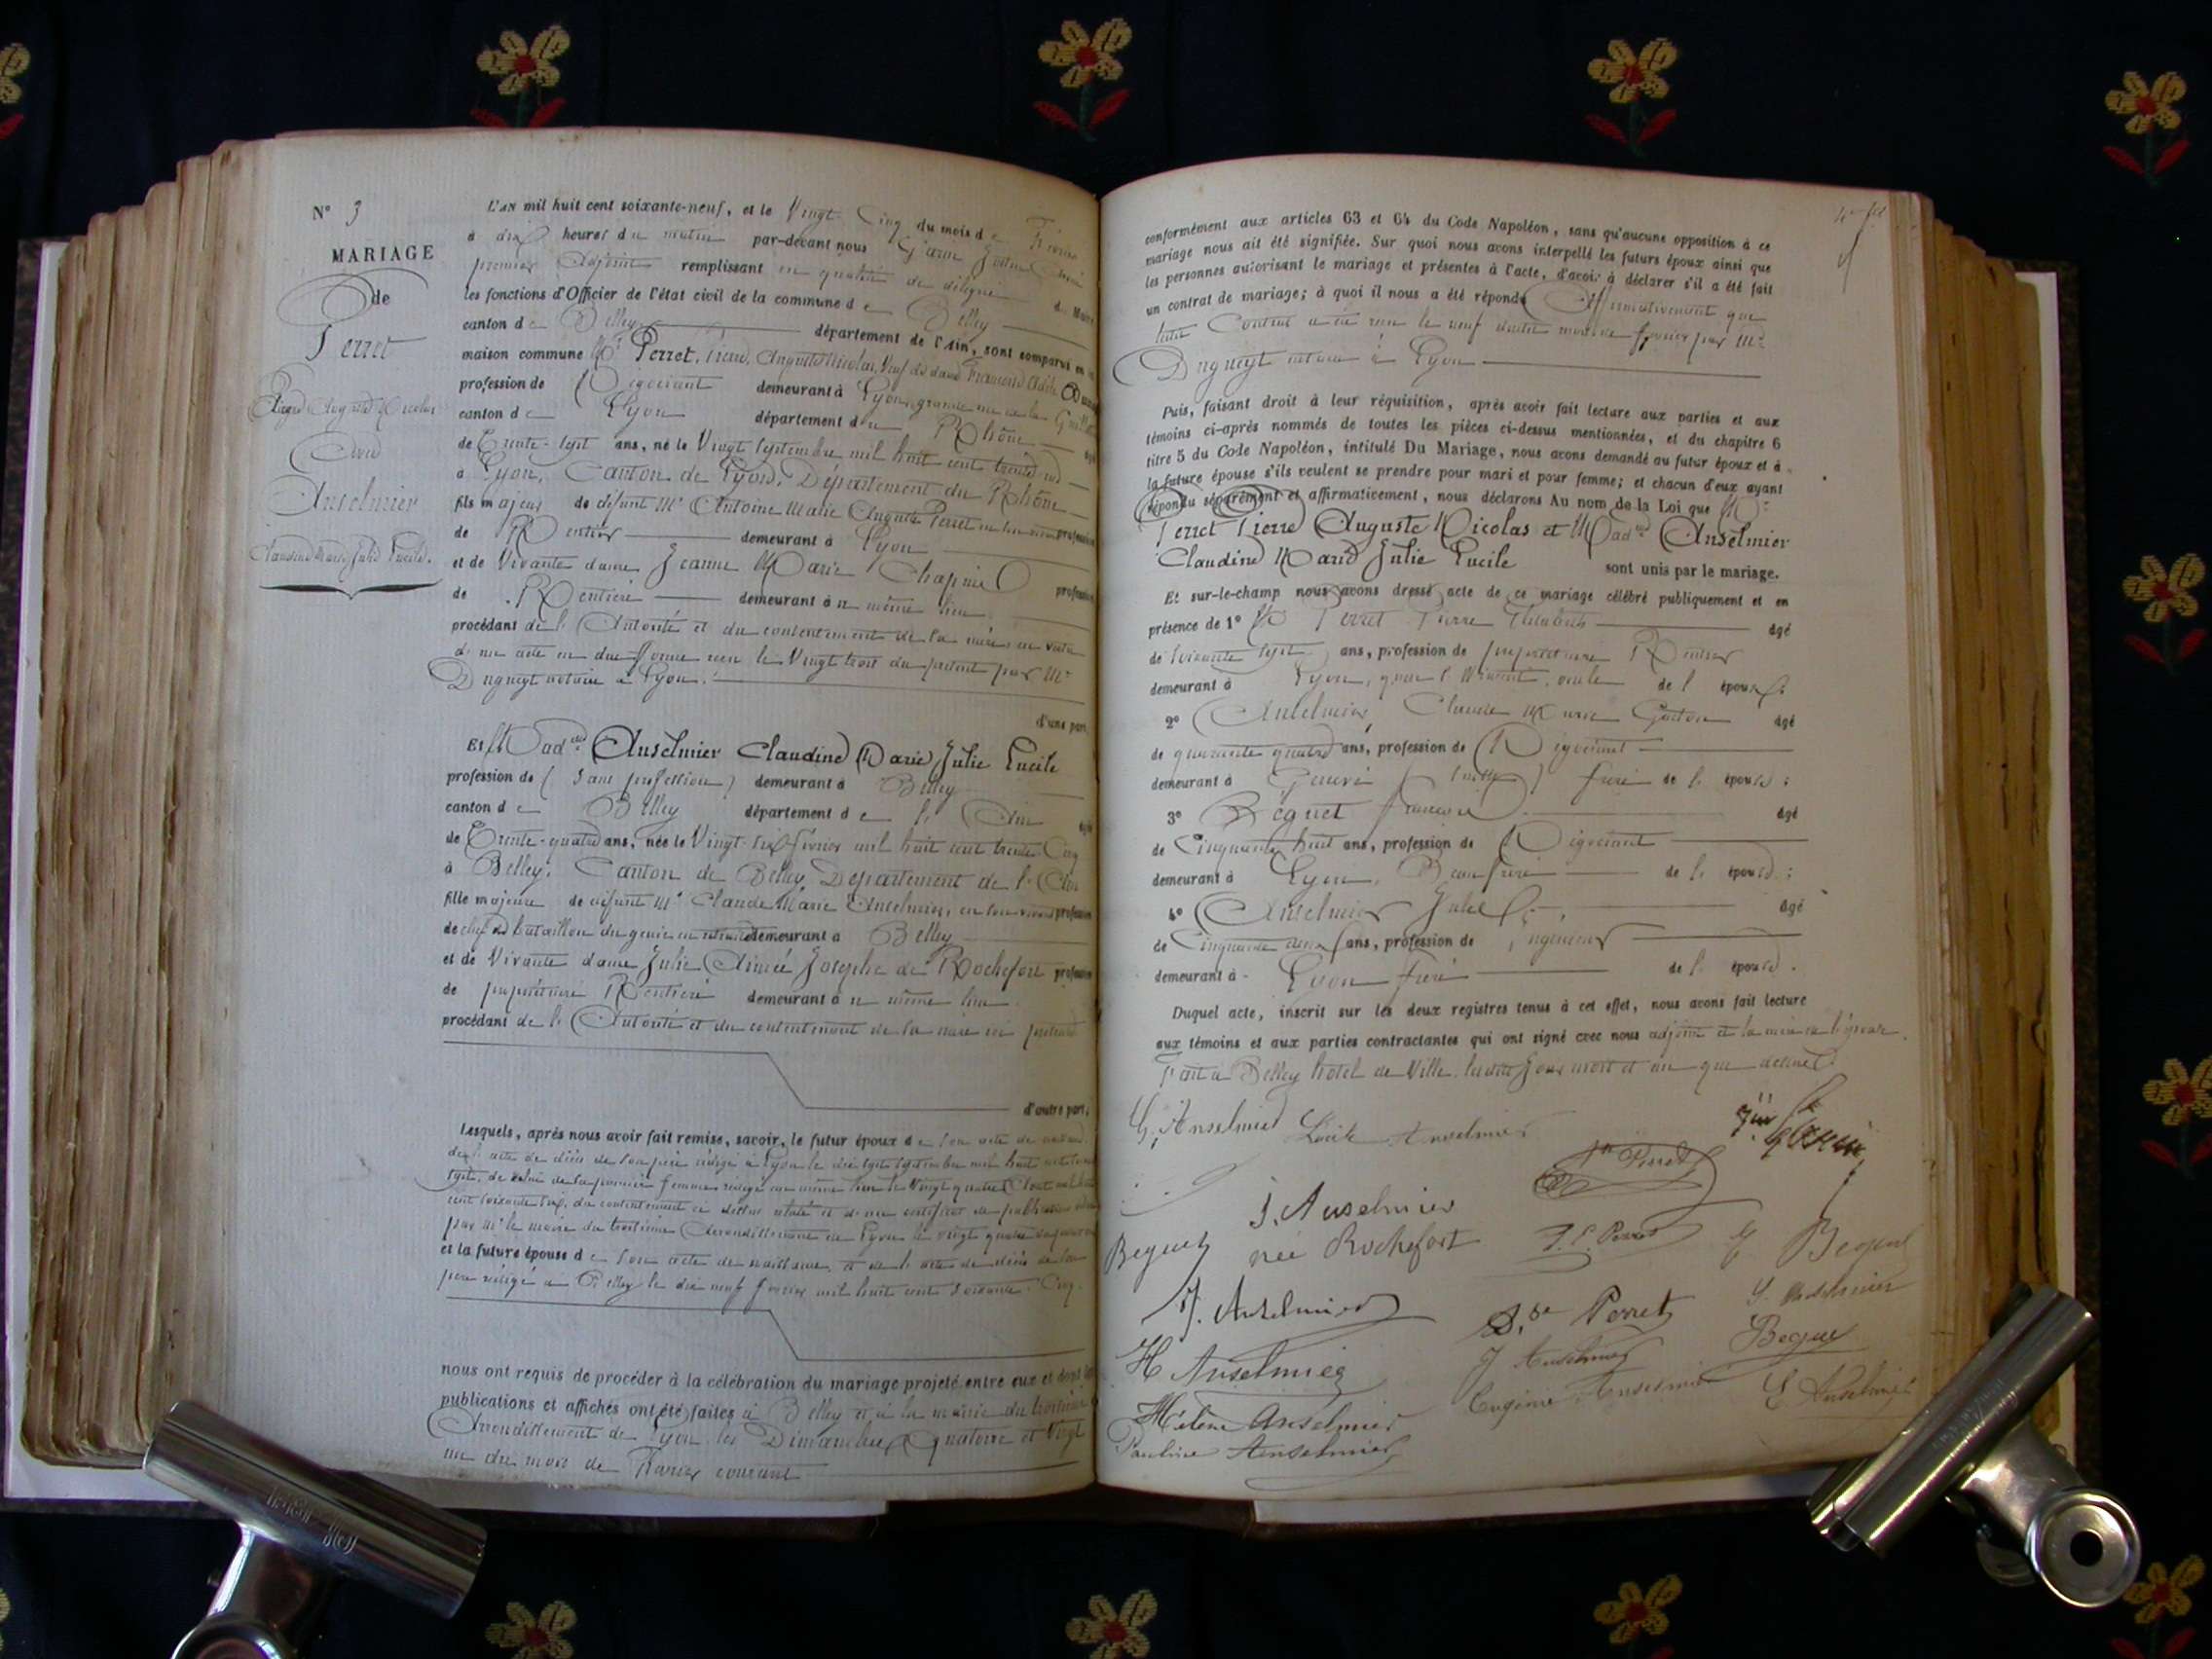 N° 3
MARIAGE
de
Perret
Pierre Auguste Nicolas
Avec
Anselmier
Claudine Marie Julie Lucile.
L'AN mil huit cent soixante-neuf, et le Vingt Cinq du mois de Février
à dix heures du matin par-devant nous
premier Adjoint remplissant en qualité de délégué d. Maire
les fonctions d'Officier de l'état civil de la commune de Belley
canton de Belley département de l'Ain, sont comparus en
maison commune Mr Perret, Pierre, Auguste Nicolas, Veuf de dame
profession de Négociant demeurant à Lyon, grande rue de la
canton de Lyon département du Rhône
de Trente-sept ans, né le Vingt septembre mil huit cent trente
à Lyon, Canton de Lyon, Département du Rhône
fils majeur de défunt Mr Antoine Marie Auguste Perret en son vivant profession
de Rentier demeurant à Lyon
et de Vivante dame Jeanne Marie profession
de Rentière demeurant à u même lieu
procédant de l'Autorité et du consentement de la mère, en vertu
d'un acte en due forme reçu le Vingt trois du présent par Me
Duguey notaire à Lyon.
d'une part,
Et Madelle Anselmier Claudine Marie Julie Lucile
profession de (sans profession) demeurant à Belley
canton de Belley département de l'Ain
de Trente-quatre ans, née le Vingt-six février mil huit cent trente Cinq
à Belley, Canton de Belley, Département de l'Ain
fille majeure de défunt Mr Claude Marie Anselmier, en son vivant profession
de chef de bataillon du génie en retraite demeurant à Belley
et de Vivante dame Julie Aimée Josephe de Rochefort profession
de propriétaire Rentière demeurant à u même lieu
procédant de l'Autorité et du consentement de la mère ici présente
d'autre part;
Lesquels, après nous avoir fait remise, savoir, le futur époux de son acte de naissance
de l'acte de décès de son père rédigé à Lyon le dix sept septembre mil huit cent
sept, de celui de sa première femme rédigé au même lieu le Vingt quatre Août mil huit
cent soixante six, du consentement ci dessus relaté et d'un certificat de publications
par Mr le maire du troisième Arrondissement de Lyon le vingt quatre
et la future épouse de son acte de naissance, et de l'acte de décès de son
père rédigé à Belley le dix neuf février mil huit cent soixante Cinq.
nous ont requis de procéder à la célébration du mariage projeté entre eux et dont les
publications et affiches ont été faites à Belley et à la mairie du troisième
Arrondissement de Lyon les Dimanches quatorze et Vingt
un du mois de Février courant
conformément aux articles 63 et 64 du Code Napoléon, sans qu'aucune opposition à ce
mariage nous ait été signifiée. Sur quoi nous avons interpellé les futurs époux ainsi que
les personnes autorisant le mariage et présentes à l'acte, d'avoir à déclarer s'il a été fait
un contrat de mariage; à quoi il nous a été répondu Affirmativement que
ledit Contrat a été reçu le neuf dudit mois de février par Me
Duguey notaire à Lyon
Puis, faisant droit à leur réquisition, après avoir fait lecture aux parties et aux
témoins ci-après nommés de toutes les pièces ci-dessus mentionnées, et du chapitre 6
titre 5 du Code Napoléon, intitulé Du Mariage, nous avons demandé au futur époux et à
la future épouse s'ils veulent se prendre pour mari et pour femme; et chacun d'eux ayant
répondu séparément et affirmativement, nous déclarons Au nom de la Loi que Mr
Perret Pierre Auguste Nicolas et Madelle Anselmier
Claudine Marie Julie Lucile sont unis par le mariage.
Et sur-le-champ nous avons dressé acte de ce mariage célébré publiquement et en
présence de 1° Mr Perret Pierre âgé
de soixante sept ans, profession de propriétaire Rentier
demeurant à Lyon, quai St Vincent, oncle de l'époux;
2° Anselmier, Claude Marie Gaston âgé
de quarante quatre ans, profession de Négociant
demeurant à Genève (Suisse) frère de l'épouse;
3° Bequet François âgé
de Cinquante huit ans, profession de Négociant
demeurant à Lyon, Beau frère de l'épouse;
4° Anselmier Jules âgé
de Cinquante deux ans, profession de Ingénieur
demeurant à Lyon frère de l'épouse.
Duquel acte, inscrit sur les deux registres tenus à cet effet, nous avons fait lecture
aux témoins et aux parties contractantes qui ont signé avec nous adjoint et la mère de l'épouse.
Fait à Belley hotel de Ville, lesdits jour mois et an que dessus.
G. Anselmier Lucile Anselmier
Perret
J. Anselmier
née Rochefort
Bequet
P. E. Perret
Bequet
J. Anselmier
Perret
S. Anselmier
H Anselmier
J Anselmier
Bequet
Hélène Anselmier
Eugénie Anselmier
E Anselmier
Pauline Anselmier